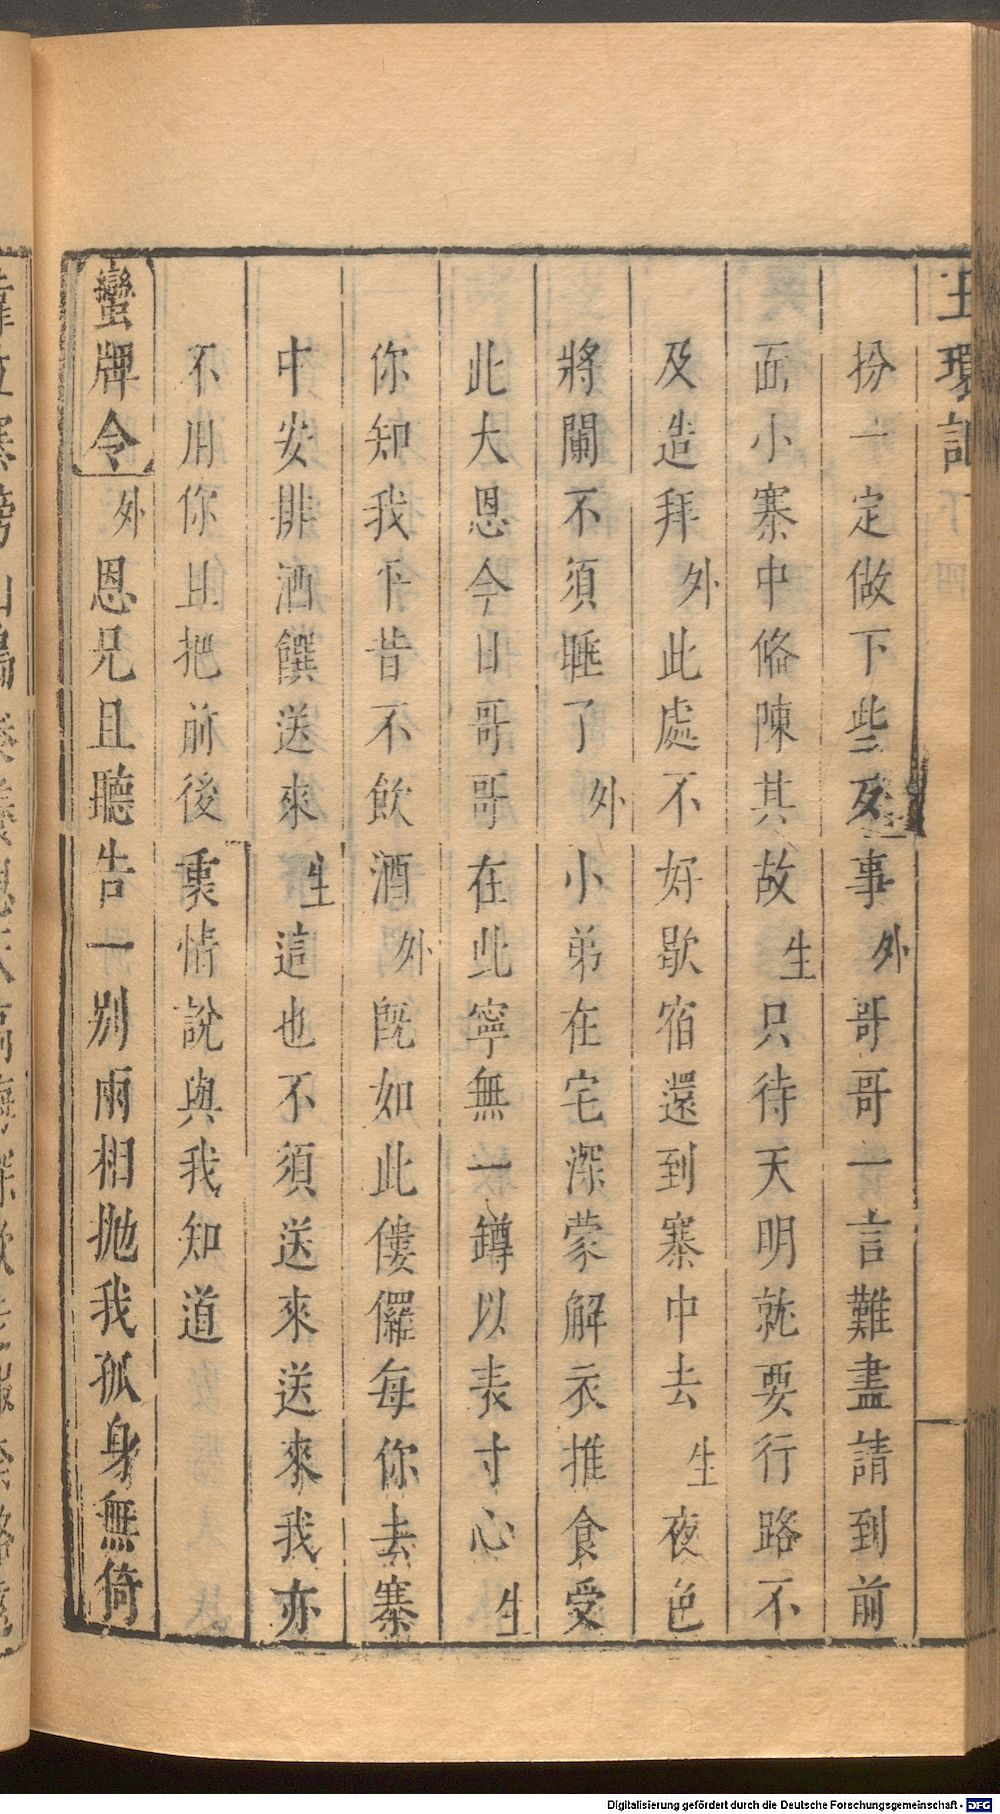 玉環記
扮一定做下些歹事外哥哥一言難盡請到前
面小寨中備陳其故生只待天明就要行路不
及造拜外此處不好歇宿還到寨中去生夜色
將闌不須睡了外小弟在宅深蒙解衣推食受
此大恩今日哥哥在此寧無一鐏以表寸心生
你知我平昔不飲酒外旣如此僂儸每你去寨
中安排酒饌送來生這也不須送來送來我亦
不用你且把前後衷情說與我知道
蠻牌令外恩兄且聽告一別兩相抛我孤身無倚
Digitalisierung gefördert durch die Deutsche Forschungsgemeinschaft - DFG